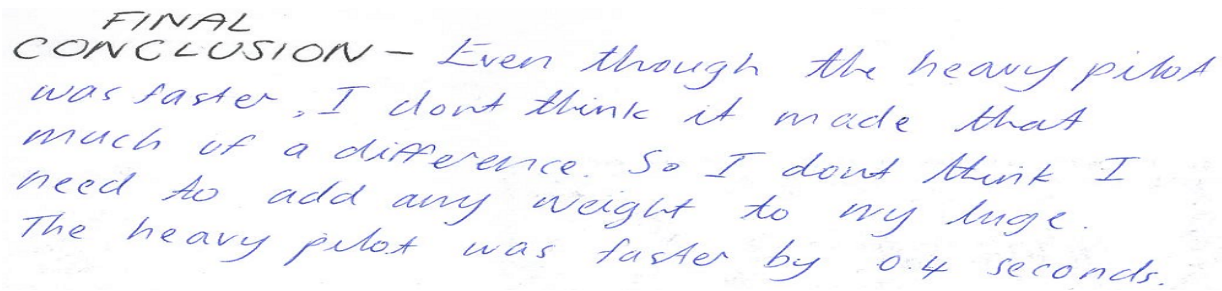 FINAL
CONCLUSION - Even though the heavy pilot
was faster, I dont think it made that
much of a difference. So I dont think I
need to add any weight to my luge.
The heavy pilot was faster by 0.4 seconds.